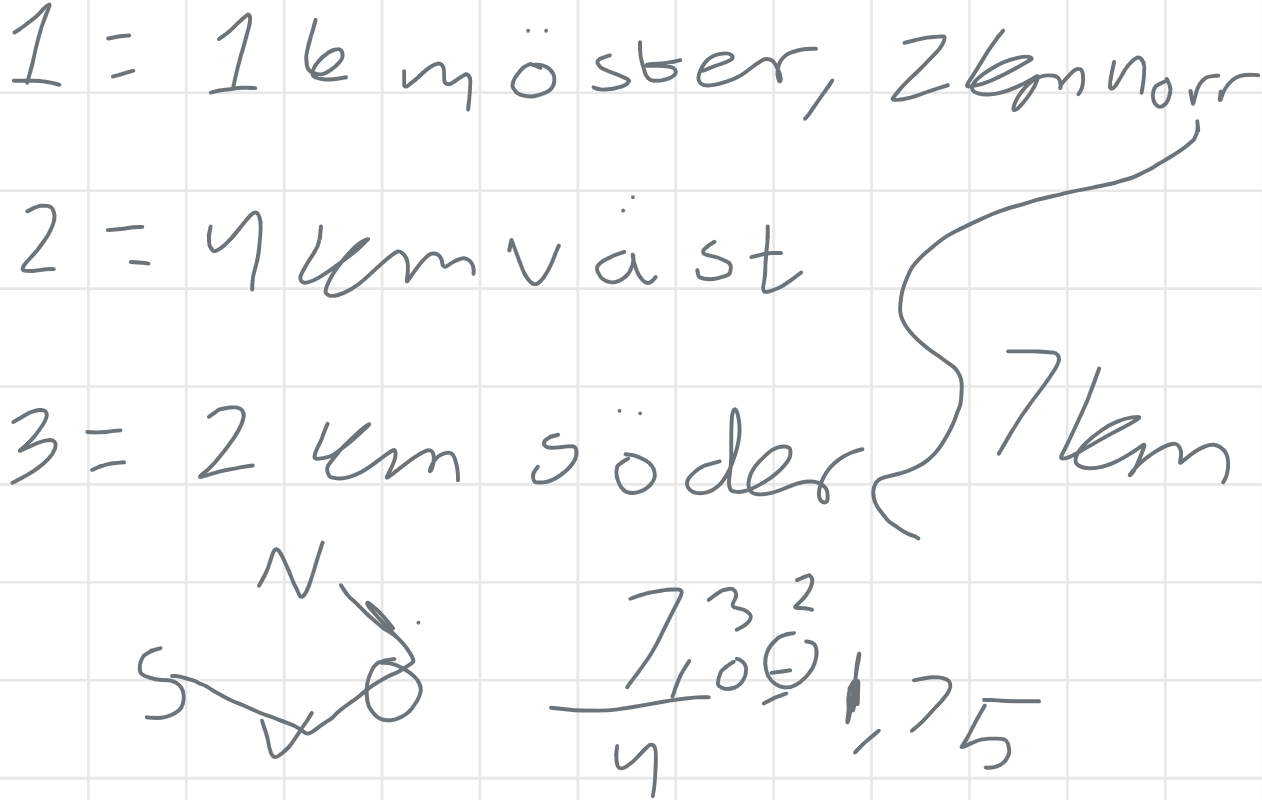 1 = 1 km öster, 2 km norr
2 = 4 km väst
3 = 2 km söder
7 km
N
S Ö
V
7,00 3 2
4
1,75